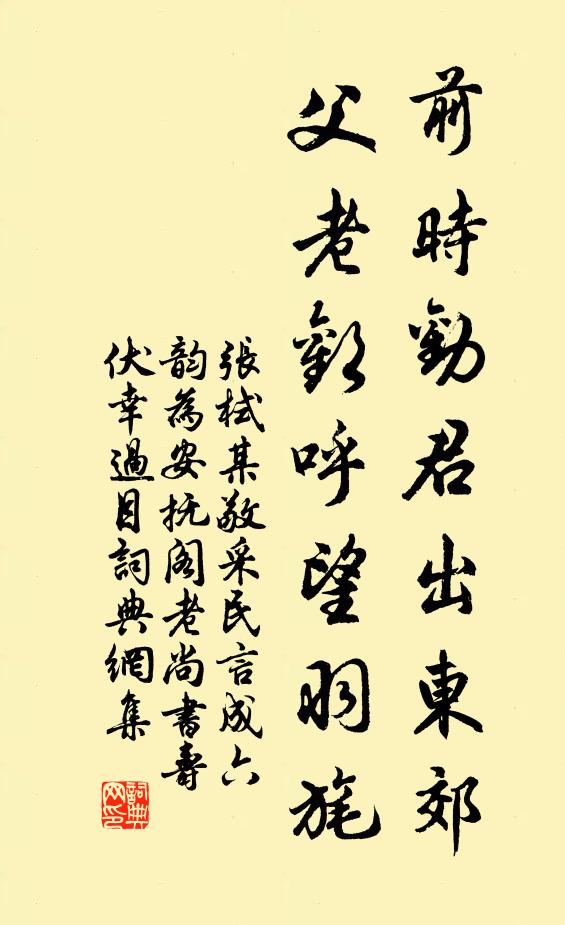 前時勸君出東郊
父老歡呼望羽旄
張栻某敬采民言成六
韵為安抚阁老尚書壽
伏幸過目詞典網集
詞典网印